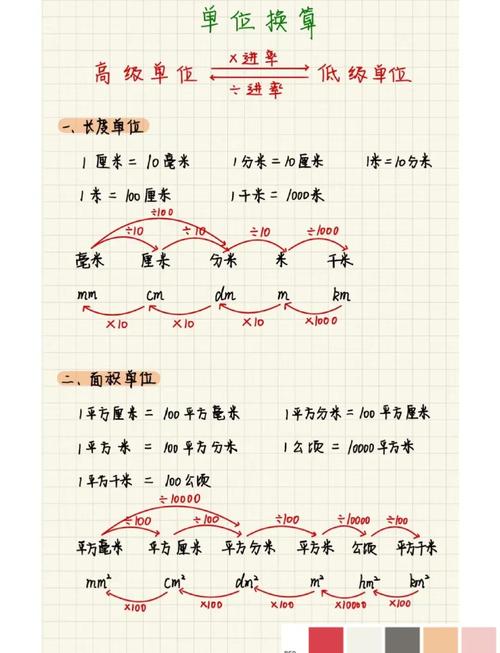 单位换算
×进率
高级单位 低级单位
÷进率
一、长度单位
1厘米 = 10毫米 1分米 = 10厘米 1米 = 10分米
1米 = 100厘米 1千米 = 1000米
÷100
÷10 ÷10 ÷10 ÷1000
毫米 厘米 分米 米 千米
mm cm dm m km
×10 ×10 ×10 ×1000
二、面积单位
1平方厘米 = 100平方毫米 1平方分米 = 100平方厘米
1平方米 = 100平方分米 1公顷 = 10000平方米
1平方千米 = 100公顷
÷10000
÷100 ÷100 ÷100 ÷10000 ÷100
平方毫米 平方厘米 平方分米 平方米 公顷 平方千米
mm² cm² dm² m² hm² km²
×100 ×100 ×100 ×10000 ×100